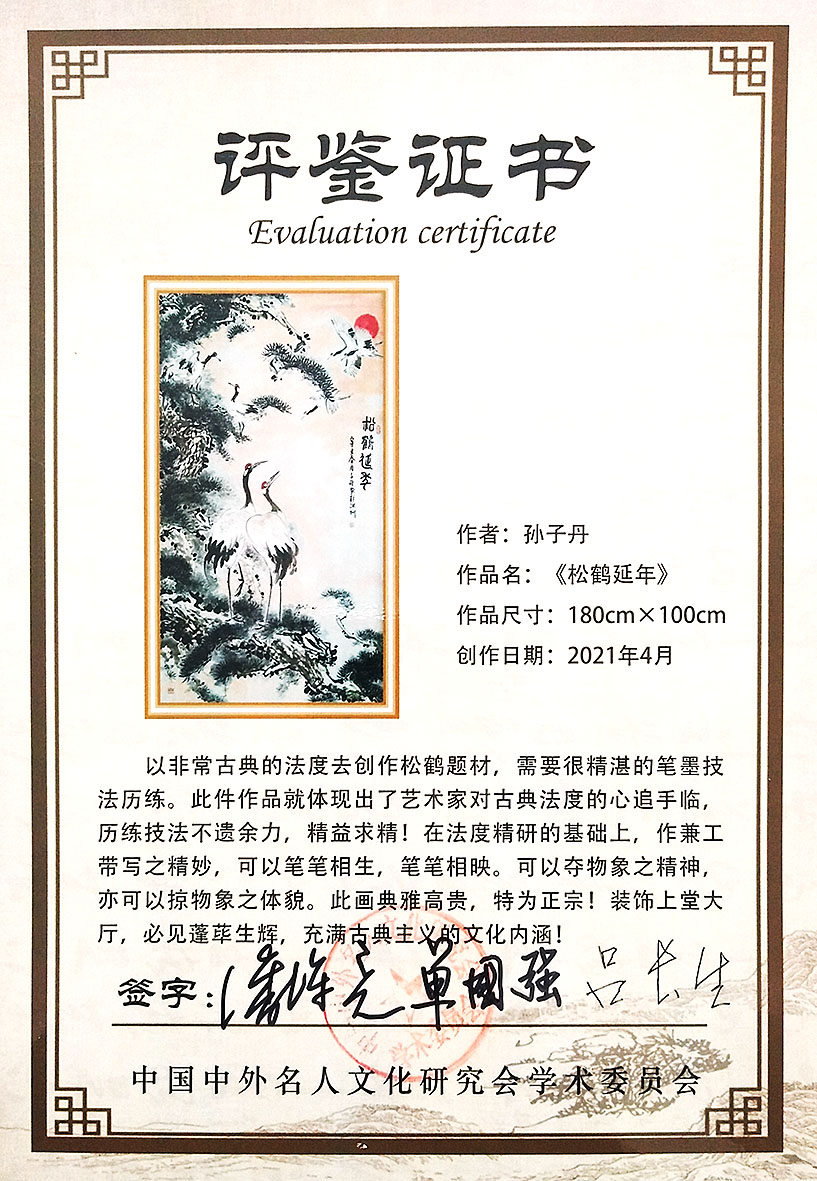 评鉴证书
Evaluation certificate
松鹤延年
作者：孙子丹
作品名：《松鹤延年》
作品尺寸：180cm×100cm
创作日期：2021年4月
以非常古典的法度去创作松鹤题材，需要很精湛的笔墨技
法历练。此件作品就体现出了艺术家对古典法度的心追手临，
历练技法不遗余力，精益求精！在法度精研的基础上，作兼工
带写之精妙，可以笔笔相生，笔笔相映。可以夺物象之精神，
亦可以掠物象之体貌。此画典雅高贵，特为正宗！装饰上堂大
厅，必见蓬荜生辉，充满古典主义的文化内涵！
签字：单国强 吕长生
中国中外名人文化研究会学术委员会